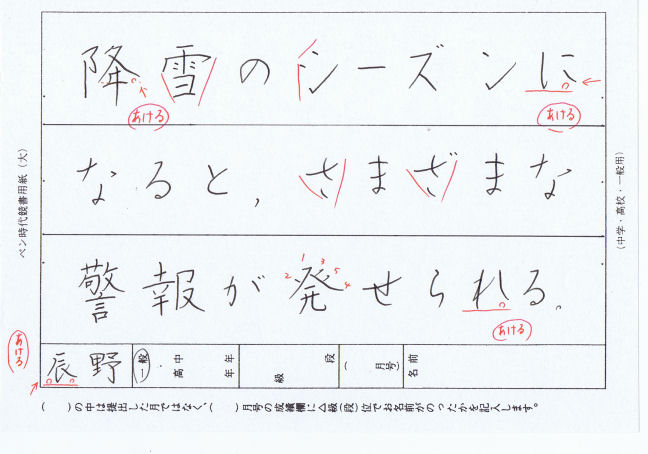 降雪のシーズンに
あける
あける
なると,さまざまな
警報が発せられる。
1 2 3 4 5
あける
あける
辰野
一般 高中 年年 級 段 ( 月号) 名前
( )の中は提出した月ではなく、( )月号の成績欄に△級(段)位でお名前がのったかを記入します。
ペン時代競書用紙(大)
(中学・高校・一般用)